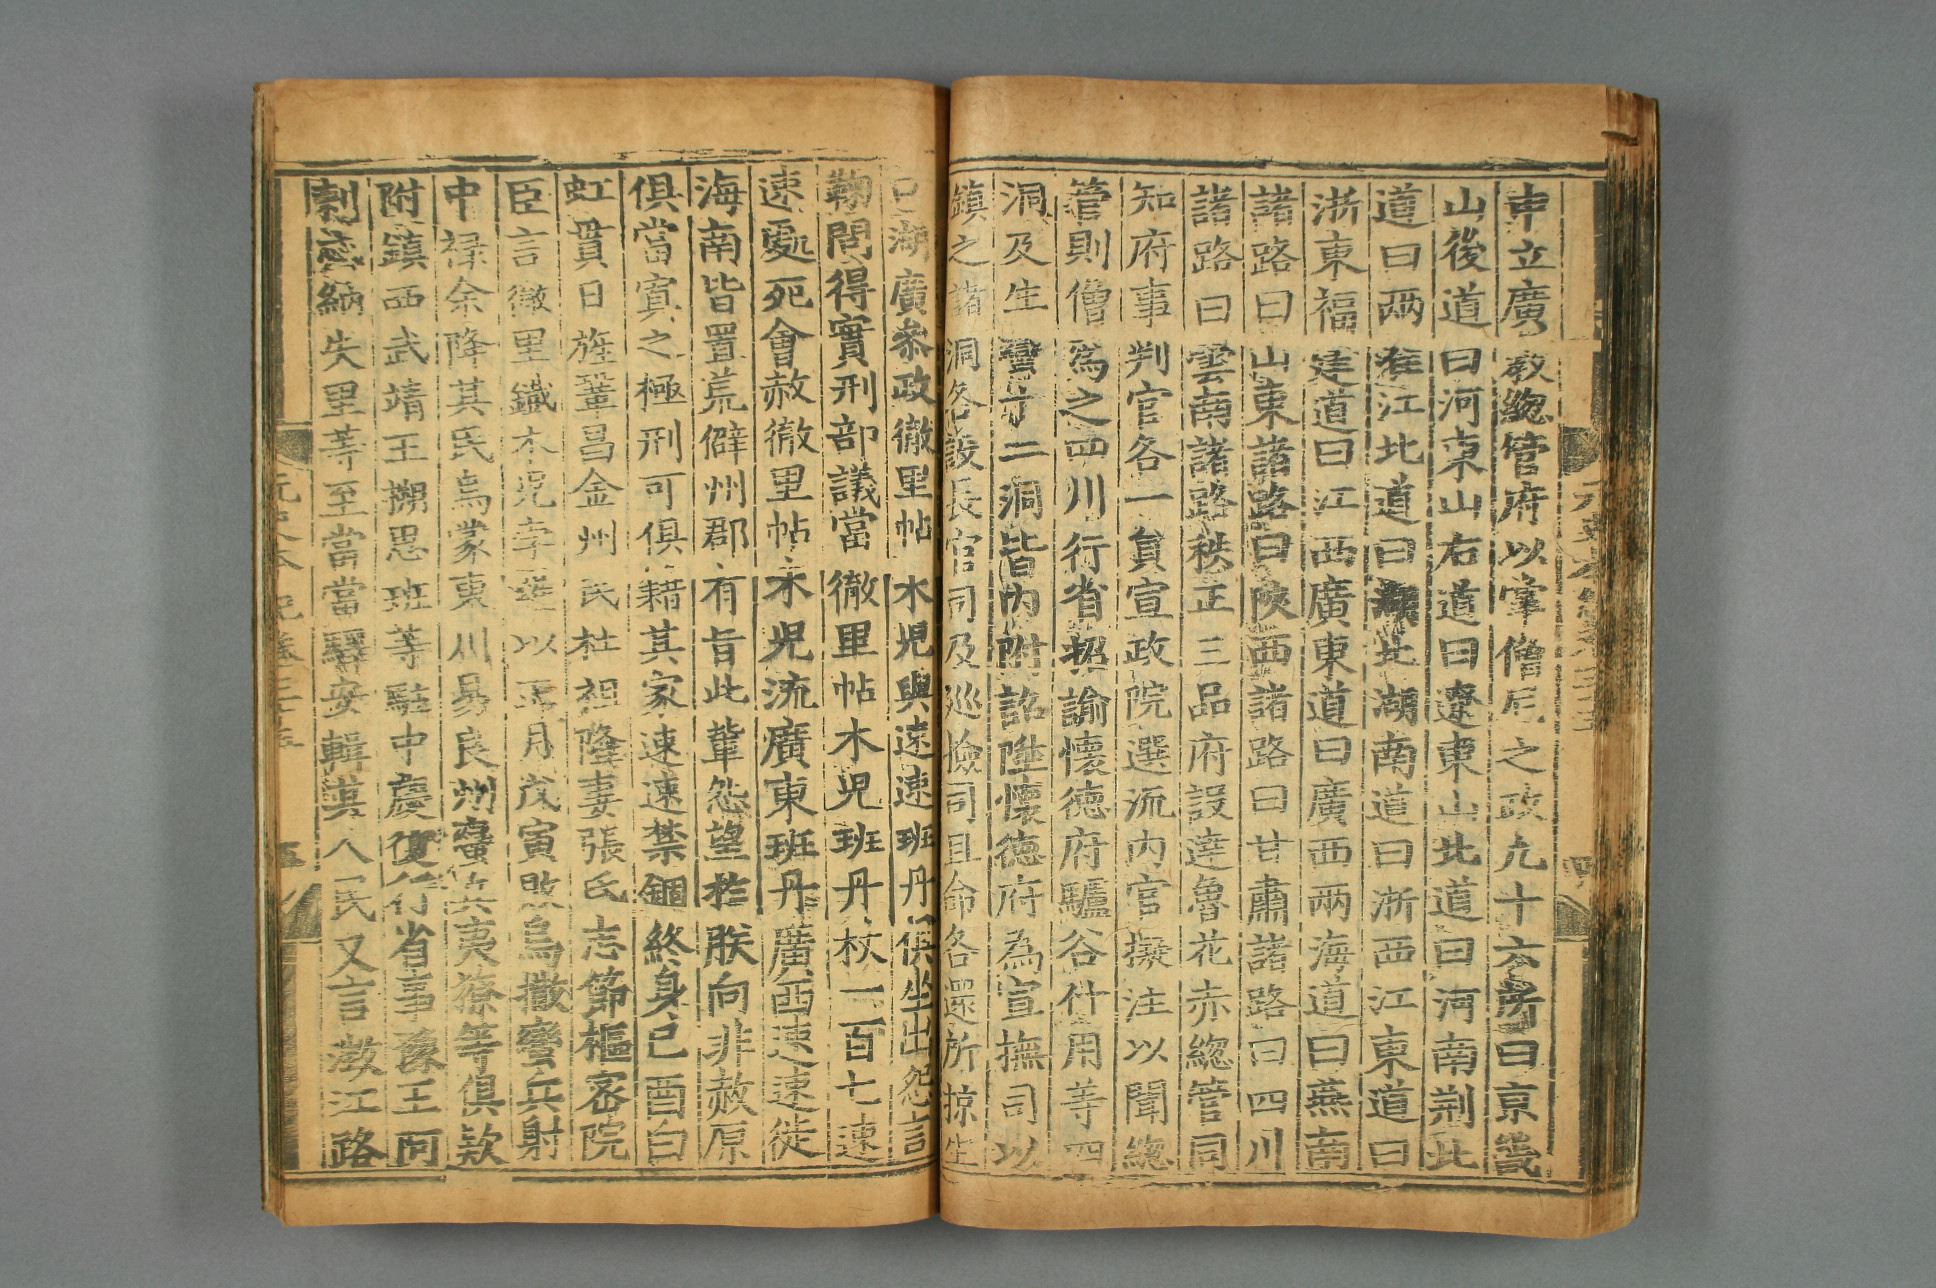 申立廣教総管府以掌僧尼之政九十六所曰京畿
山後道曰河東山右道曰遼東山北道曰河南荆北
道曰两淮江北道曰湖北湖南道曰浙西江東道曰
浙東福建道曰江西廣東道曰廣西两海道曰燕南
諸路曰山東諸路曰陝西諸路曰甘肅諸路曰四川
諸路曰雲南諸路秩正三品府設達魯花赤緫管同
知府事判官各一員宣政院選流内官擬注以聞緫
管則僧爲之四川行省招諭懷徳府驢谷什用等四
洞及生蠻十二洞皆内附詔陞懷徳府為宣撫司以
鎮之諸洞各設長官司及巡檢司且命各還所掠生
口湖廣參政徹里帖木児與速速班丹俱坐出怨言
鞫問得實刑部議當徹里帖木児班丹杖一百七速
速處死會赦徹里帖木児流廣東班丹廣西速速徙
海南皆置荒僻州郡有旨此輩怨望於朕向非赦原
俱當寘之極刑可俱籍其家速速禁錮終身己酉白
虹貫日旌鞏昌金州民杜祖隆妻張氏志節樞宻院
臣言徹里鐵木児孛羅以正月戊寅敗烏撒蠻兵射
中禄余降其民烏蒙東川易良州蠻兵夷獠等俱欵
附鎮西武靖王搠思班等駐中慶復行省事豫王阿
剌忒納失里等至當當驛安輯其人民又言澂江路
元史本紀卷三十五
五